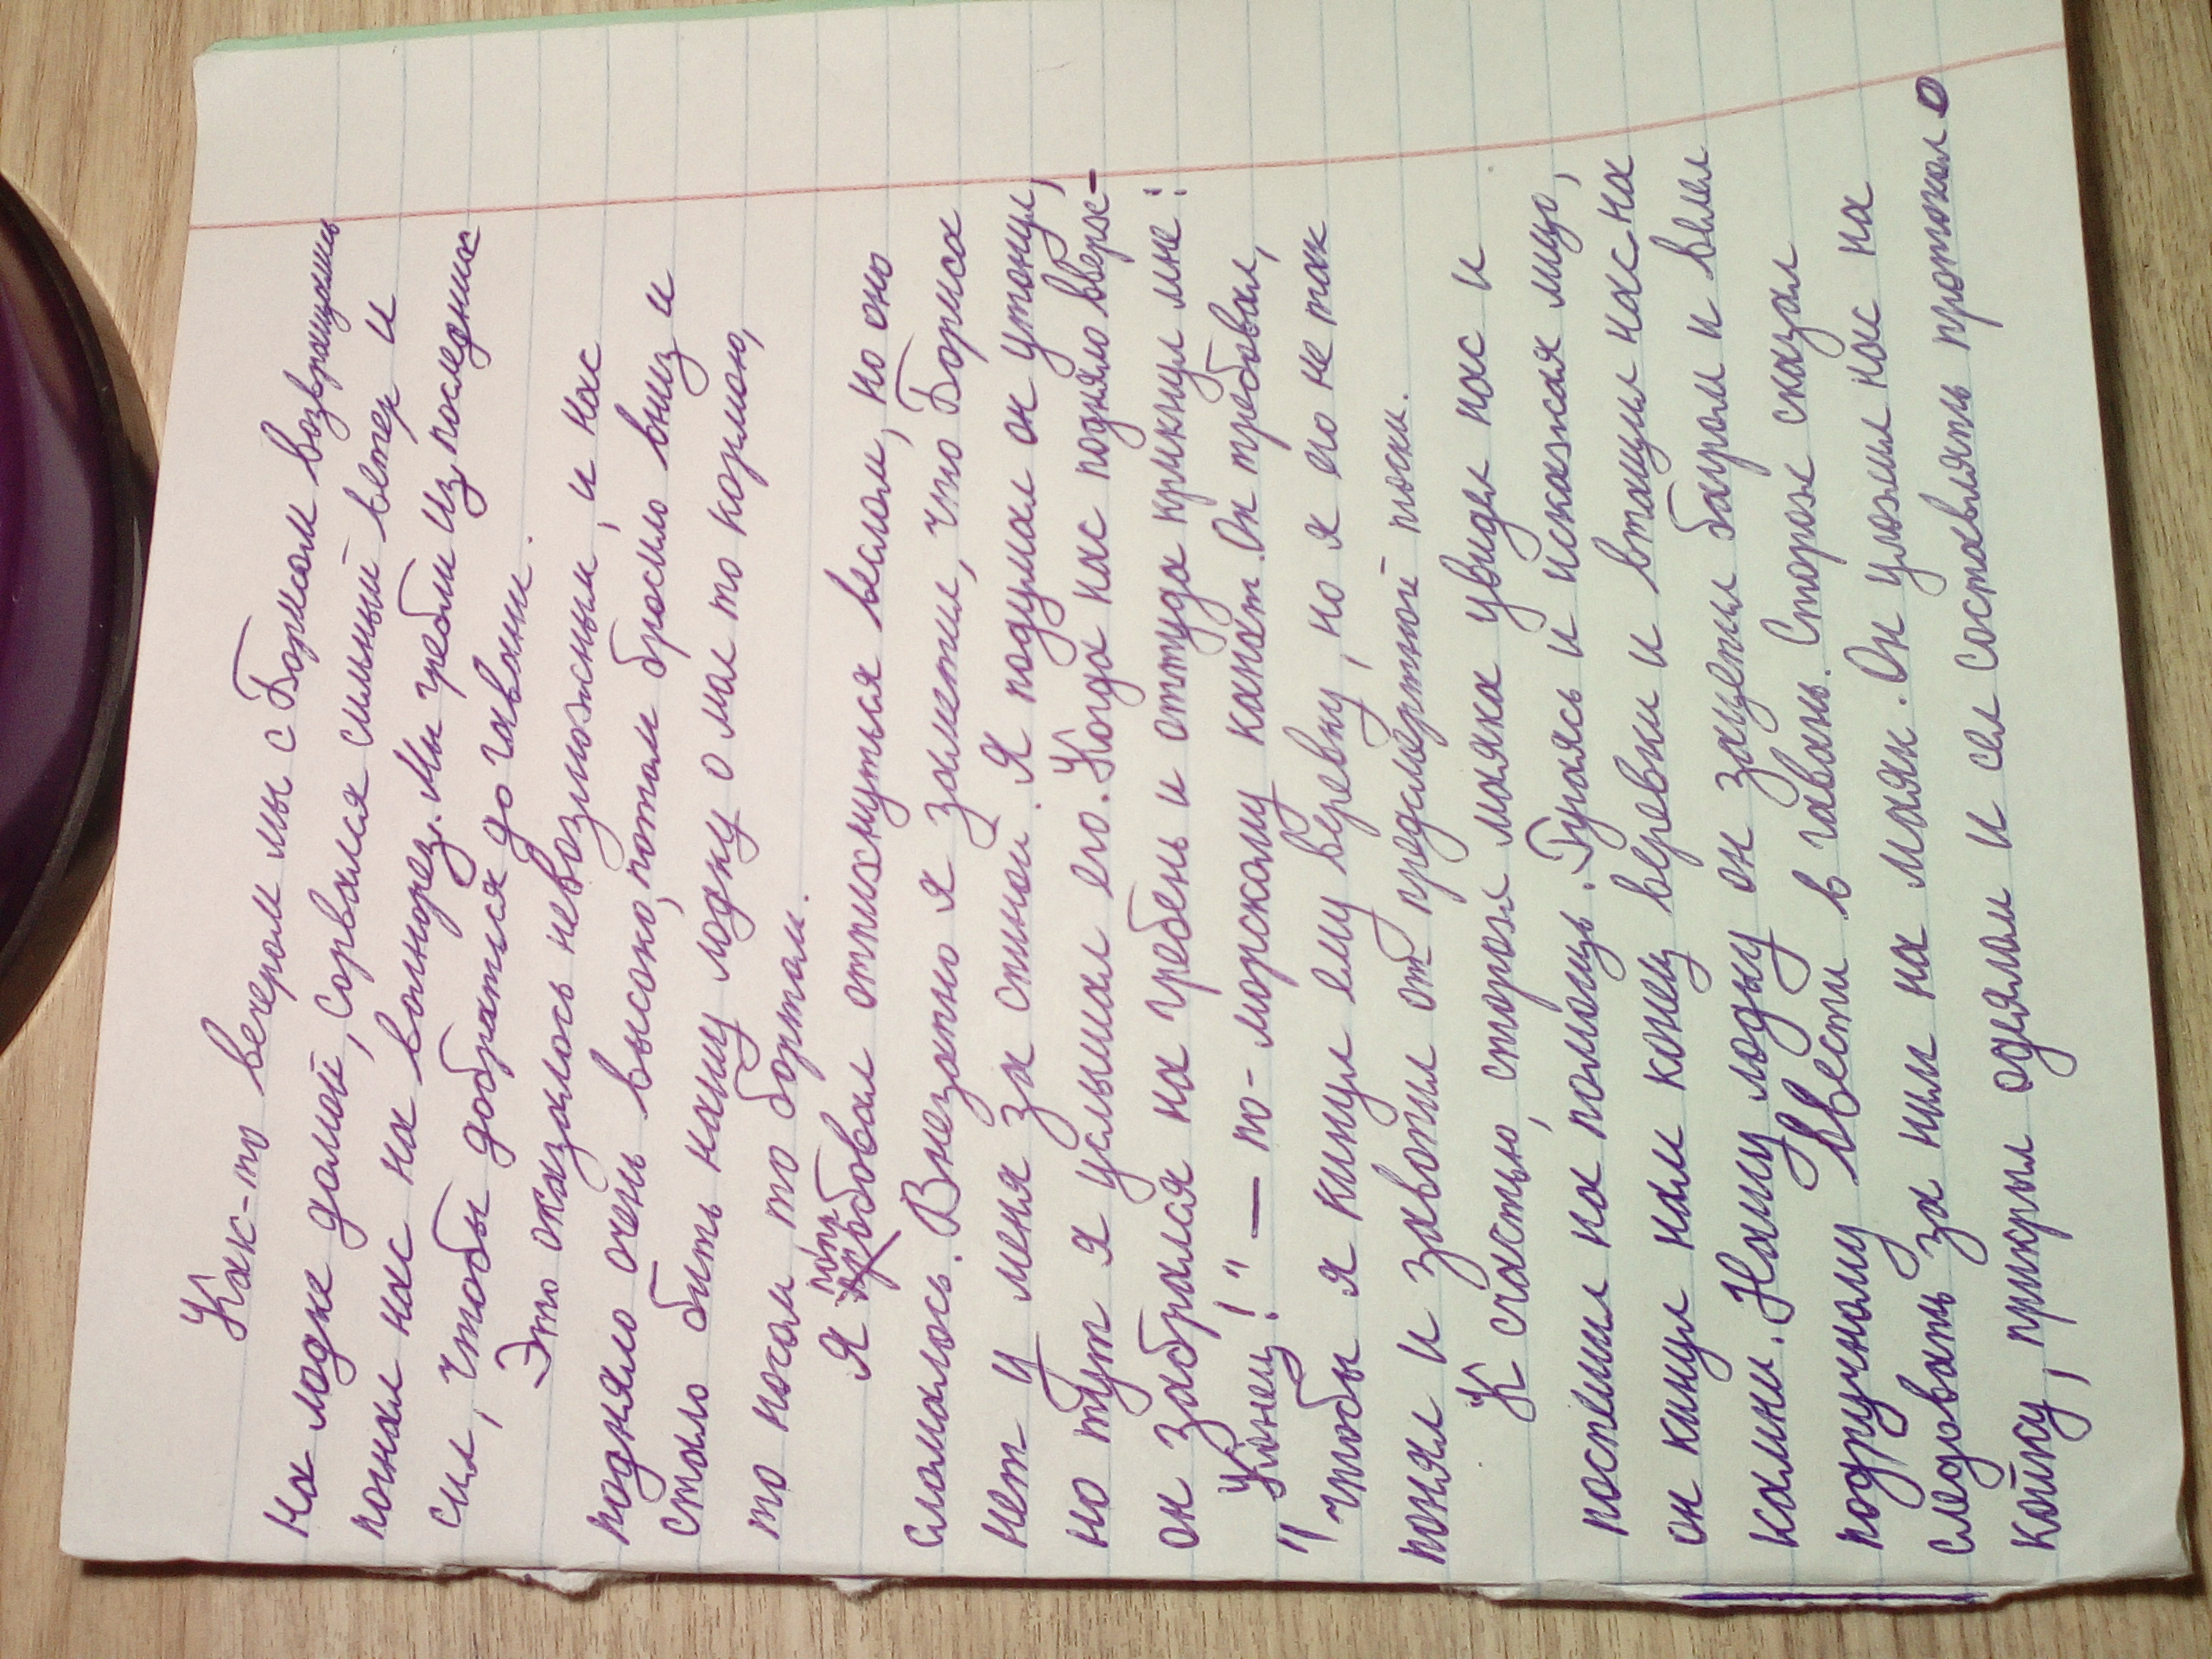 Как-то вечером мы с Борисом возвращались
на лодке домой, сорвался сильный ветер и
погнал нас на волнорез. Мы гребли из последних
сил, чтобы добраться до гавани.
Это оказалось невозможным, и нас
подняло очень высоко, потом бросило вниз и
стало бить нашу лодку о мол то кормою,
то носом то бортом.
Я попробовал отпихнуться веслом, но оно
сломалось. Внезапно я заметил, что Бориса
нет у меня за спиной. Я подумал он утонул,
но тут я услышал его. Когда нас подняло вверх –
он забрался на гребень и оттуда крикнул мне:
"Конец!" — по-морскому канат. Он требовал,
чтобы я кинул ему веревку, но я его не так
понял и завопил от предсмертной тоски.
К счастью, сторож маяка увидел нас и
поспешил на помощь. Ругаясь и искажая лицо,
он кинул нам конец веревки и втащил нас на
камни. Нашу лодку он зацепил багром и велел
подручному ввести в гавань. Сторож сказал
следовать за ним на маяк. Он уложил нас на
койку, прикрыл одеялом и сел составлять протокол